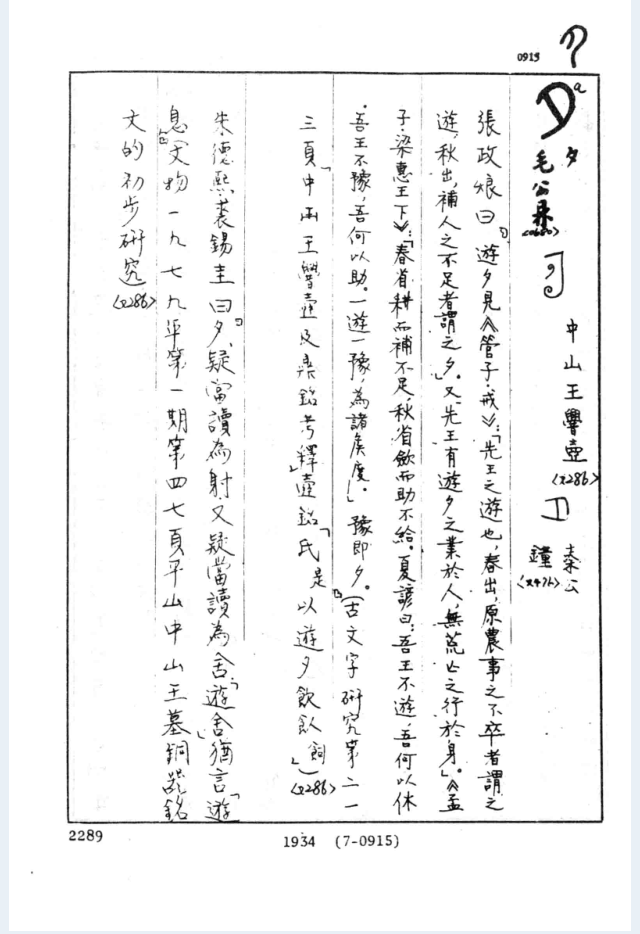 0915
夕
毛公鼎
中山王響壺
<x286>
秦公
鐘
<x476>
張政烺曰『遊夕見《管子·戒》:「先王之遊也,春出,原農事之不卒者謂之
遊,秋出,補人之不足者謂之夕。」又「先王有遊夕之業於人,無荒亡之行於身。」《孟
子·梁惠王下》:「春省耕而補不足,秋省斂而助不給。夏諺曰:吾王不遊,吾何以休
。吾王不豫,吾何以助。一遊一豫,為諸侯度。」豫即夕。』(古文字研究第二一
三頁「中山王響壺及鼎銘考釋」壺銘「氏是以遊夕飲飤詞」)<x286>
朱德熙裘錫圭曰『夕,疑當讀為射又疑當讀為舍,「遊舍」猶言「遊
息』文物一九七九年第一期第四七頁平山中山王墓銅器銘
文的初步研究<x286>
2289
1934 (7-0915)